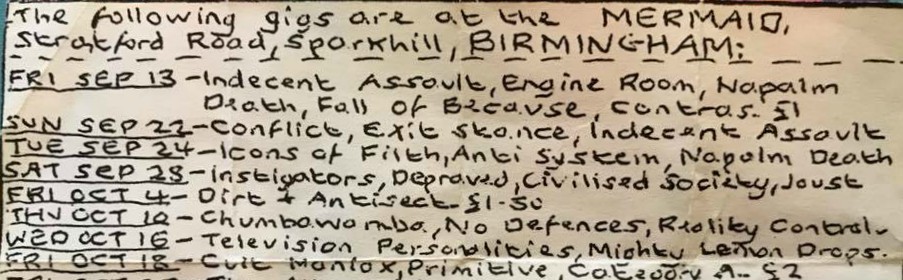 The following gigs are at the MERMAID,
Stratford Road, Sparkhill, BIRMINGHAM:
FRI SEP 13 - Indecent Assault, Engine Room, Napalm
Death, Fall of Because, Contras. £1
SUN SEP 22 - Conflict, Exit Stance, Indecent Assault
TUE SEP 24 - Icons of Filth, Anti System, Napalm Death
SAT SEP 28 - Instigators, Depraved, Civilised Society, Joust
FRI OCT 4 - Dirt + Antisect - £1-50
THU OCT 10 - Chumbawamba, No Defences, Reality Control.
WED OCT 16 - Television Personalities, Mighty Lemon Drops.
FRI OCT 18 - Cult Maniax, Primitive, Category A - £2